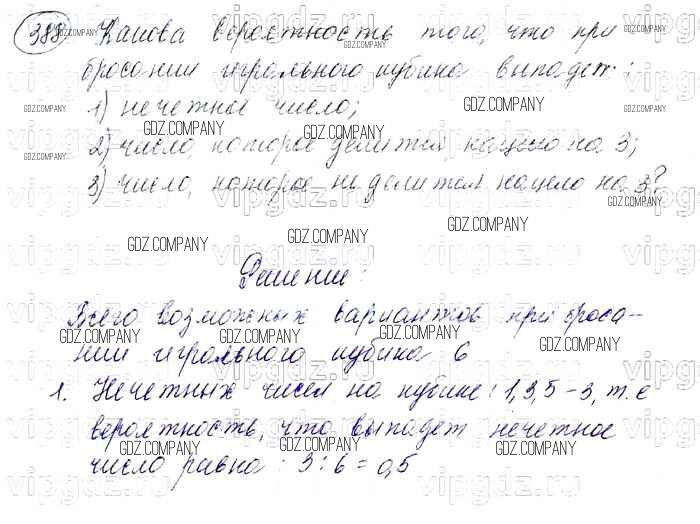 388 Какова вероятность того, что при
бросании игрального кубика выпадет:
1) нечетное число;
2) число, которое делится нацело на 3;
3) число, которое не делится нацело на 3?
Решение:
Всего возможных вариантов при броса-
нии игрального кубика 6
1. Нечетных чисел на кубике: 1,3,5 – 3, т.е
вероятность, что выпадет нечетное
число равна: 3:6=0,5
GDZ.COMPANY
vipgdz.ru